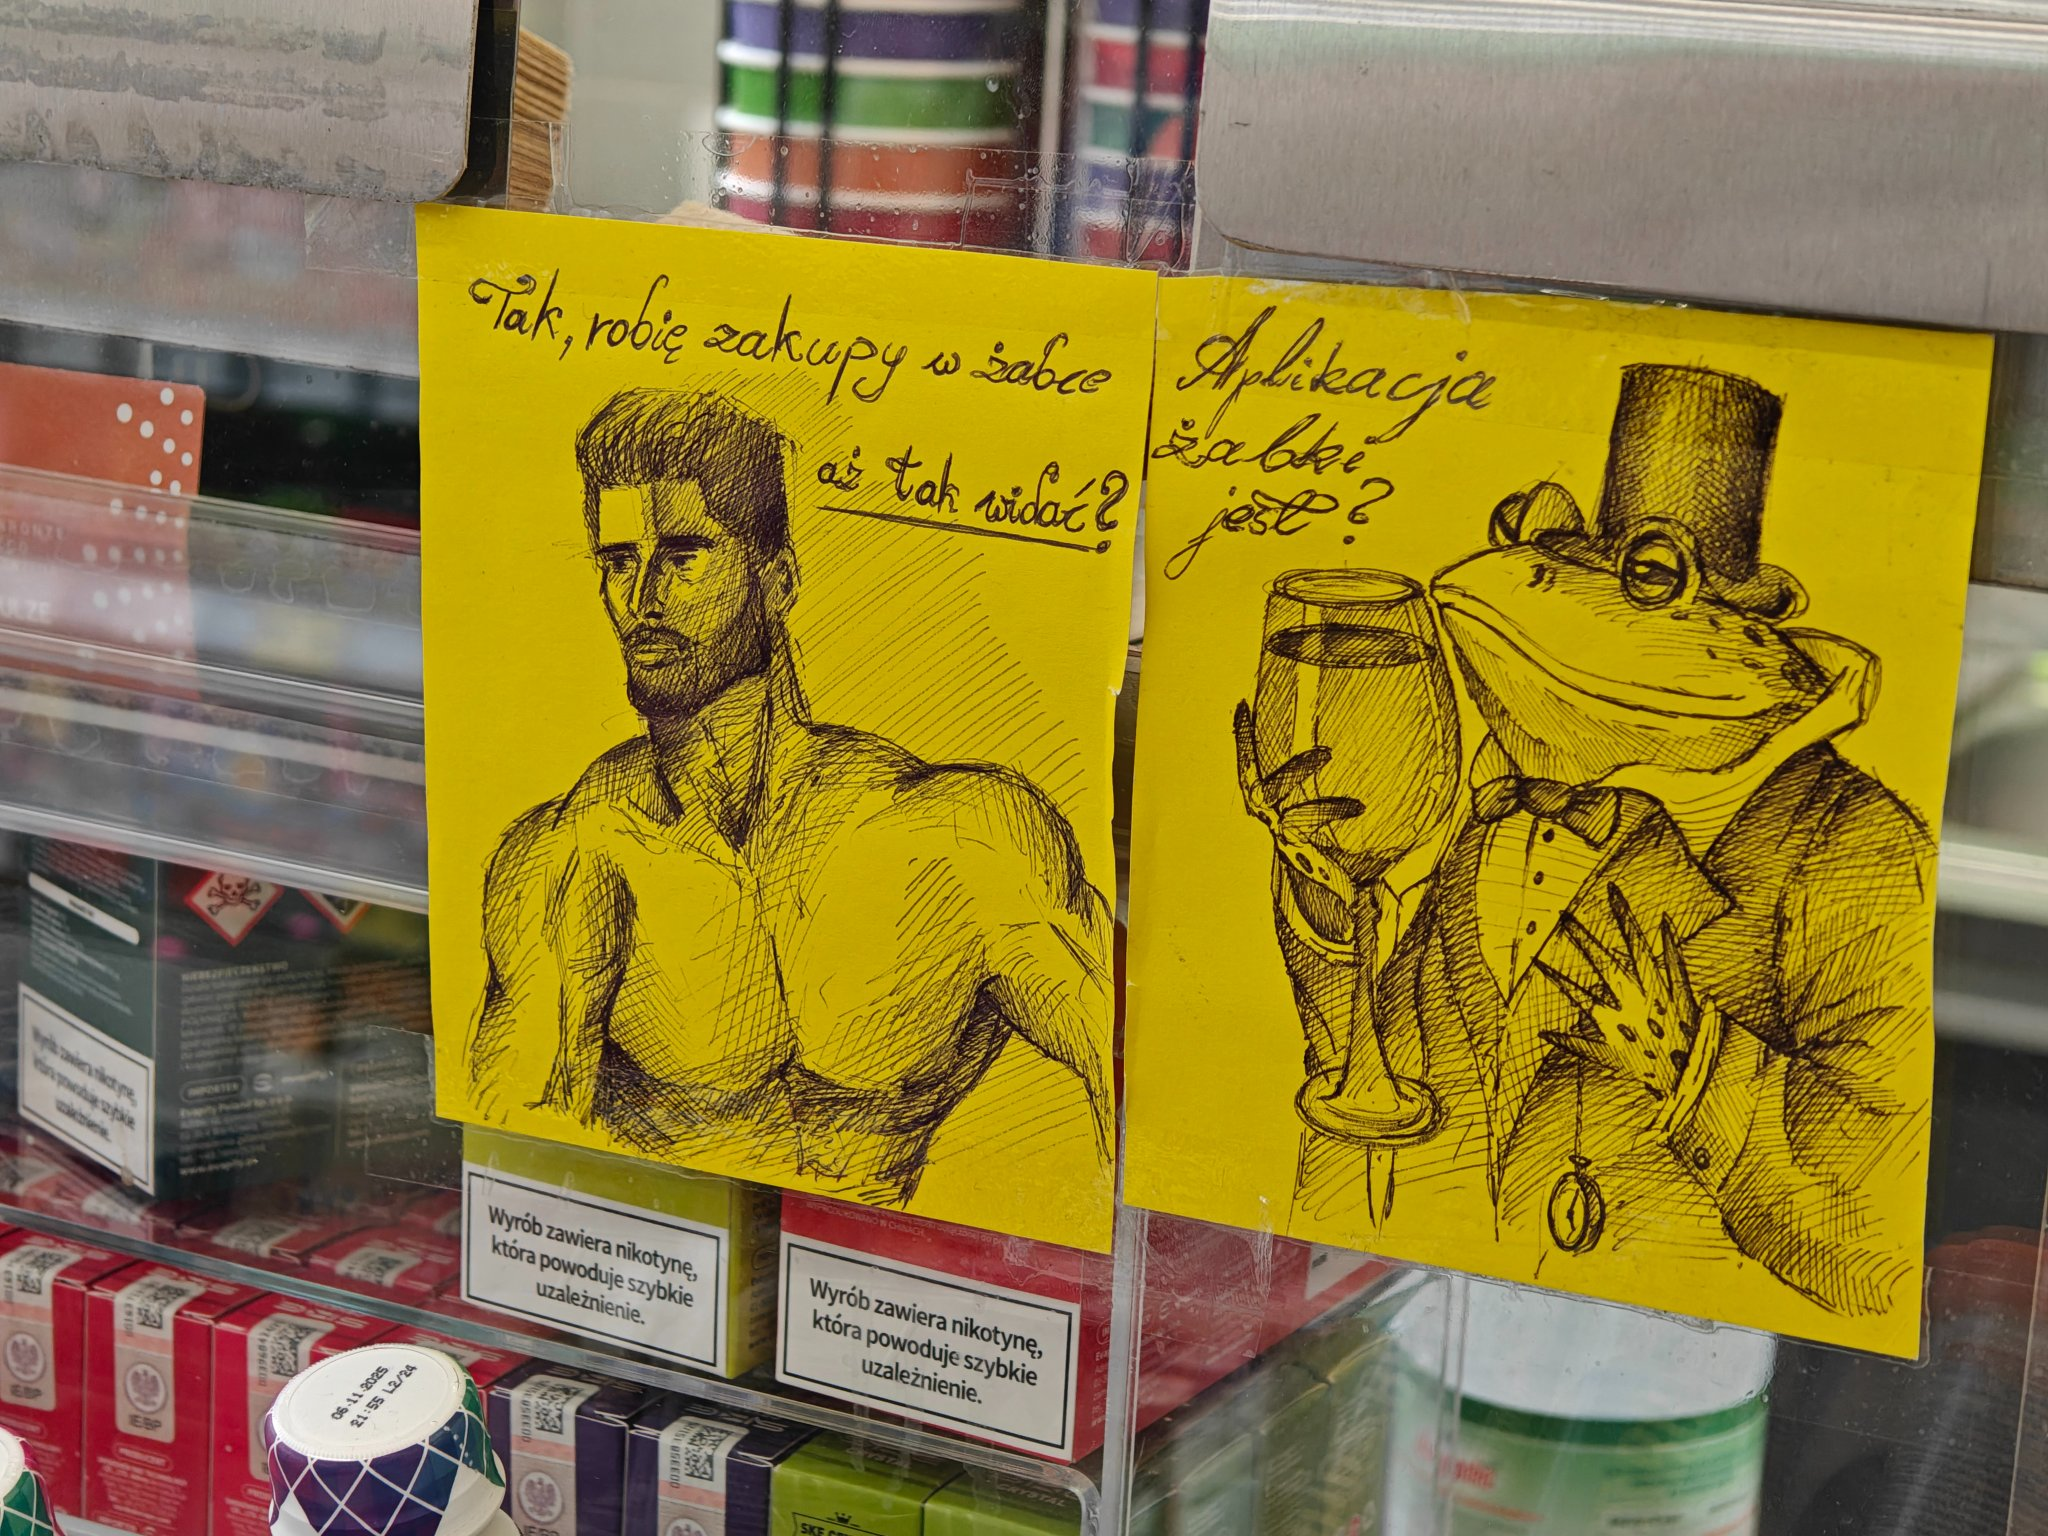 Tak, robię zakupy w żabce
aż tak widać?
Aplikacja
żabki
jest?
Wyrób zawiera nikotynę,
która powoduje szybkie
uzależnienie.
Wyrób zawiera nikotynę,
która powoduje szybkie
uzależnienie.
Wyrób zawiera nikotynę,
która powoduje szybkie
uzależnienie.
NIEBEZPIECZEŃSTWO
IMPORTER
06.11.2025
21:55 L2/24
IEBP
IEBP
PRODUCENT
CRYSTAL
SKE